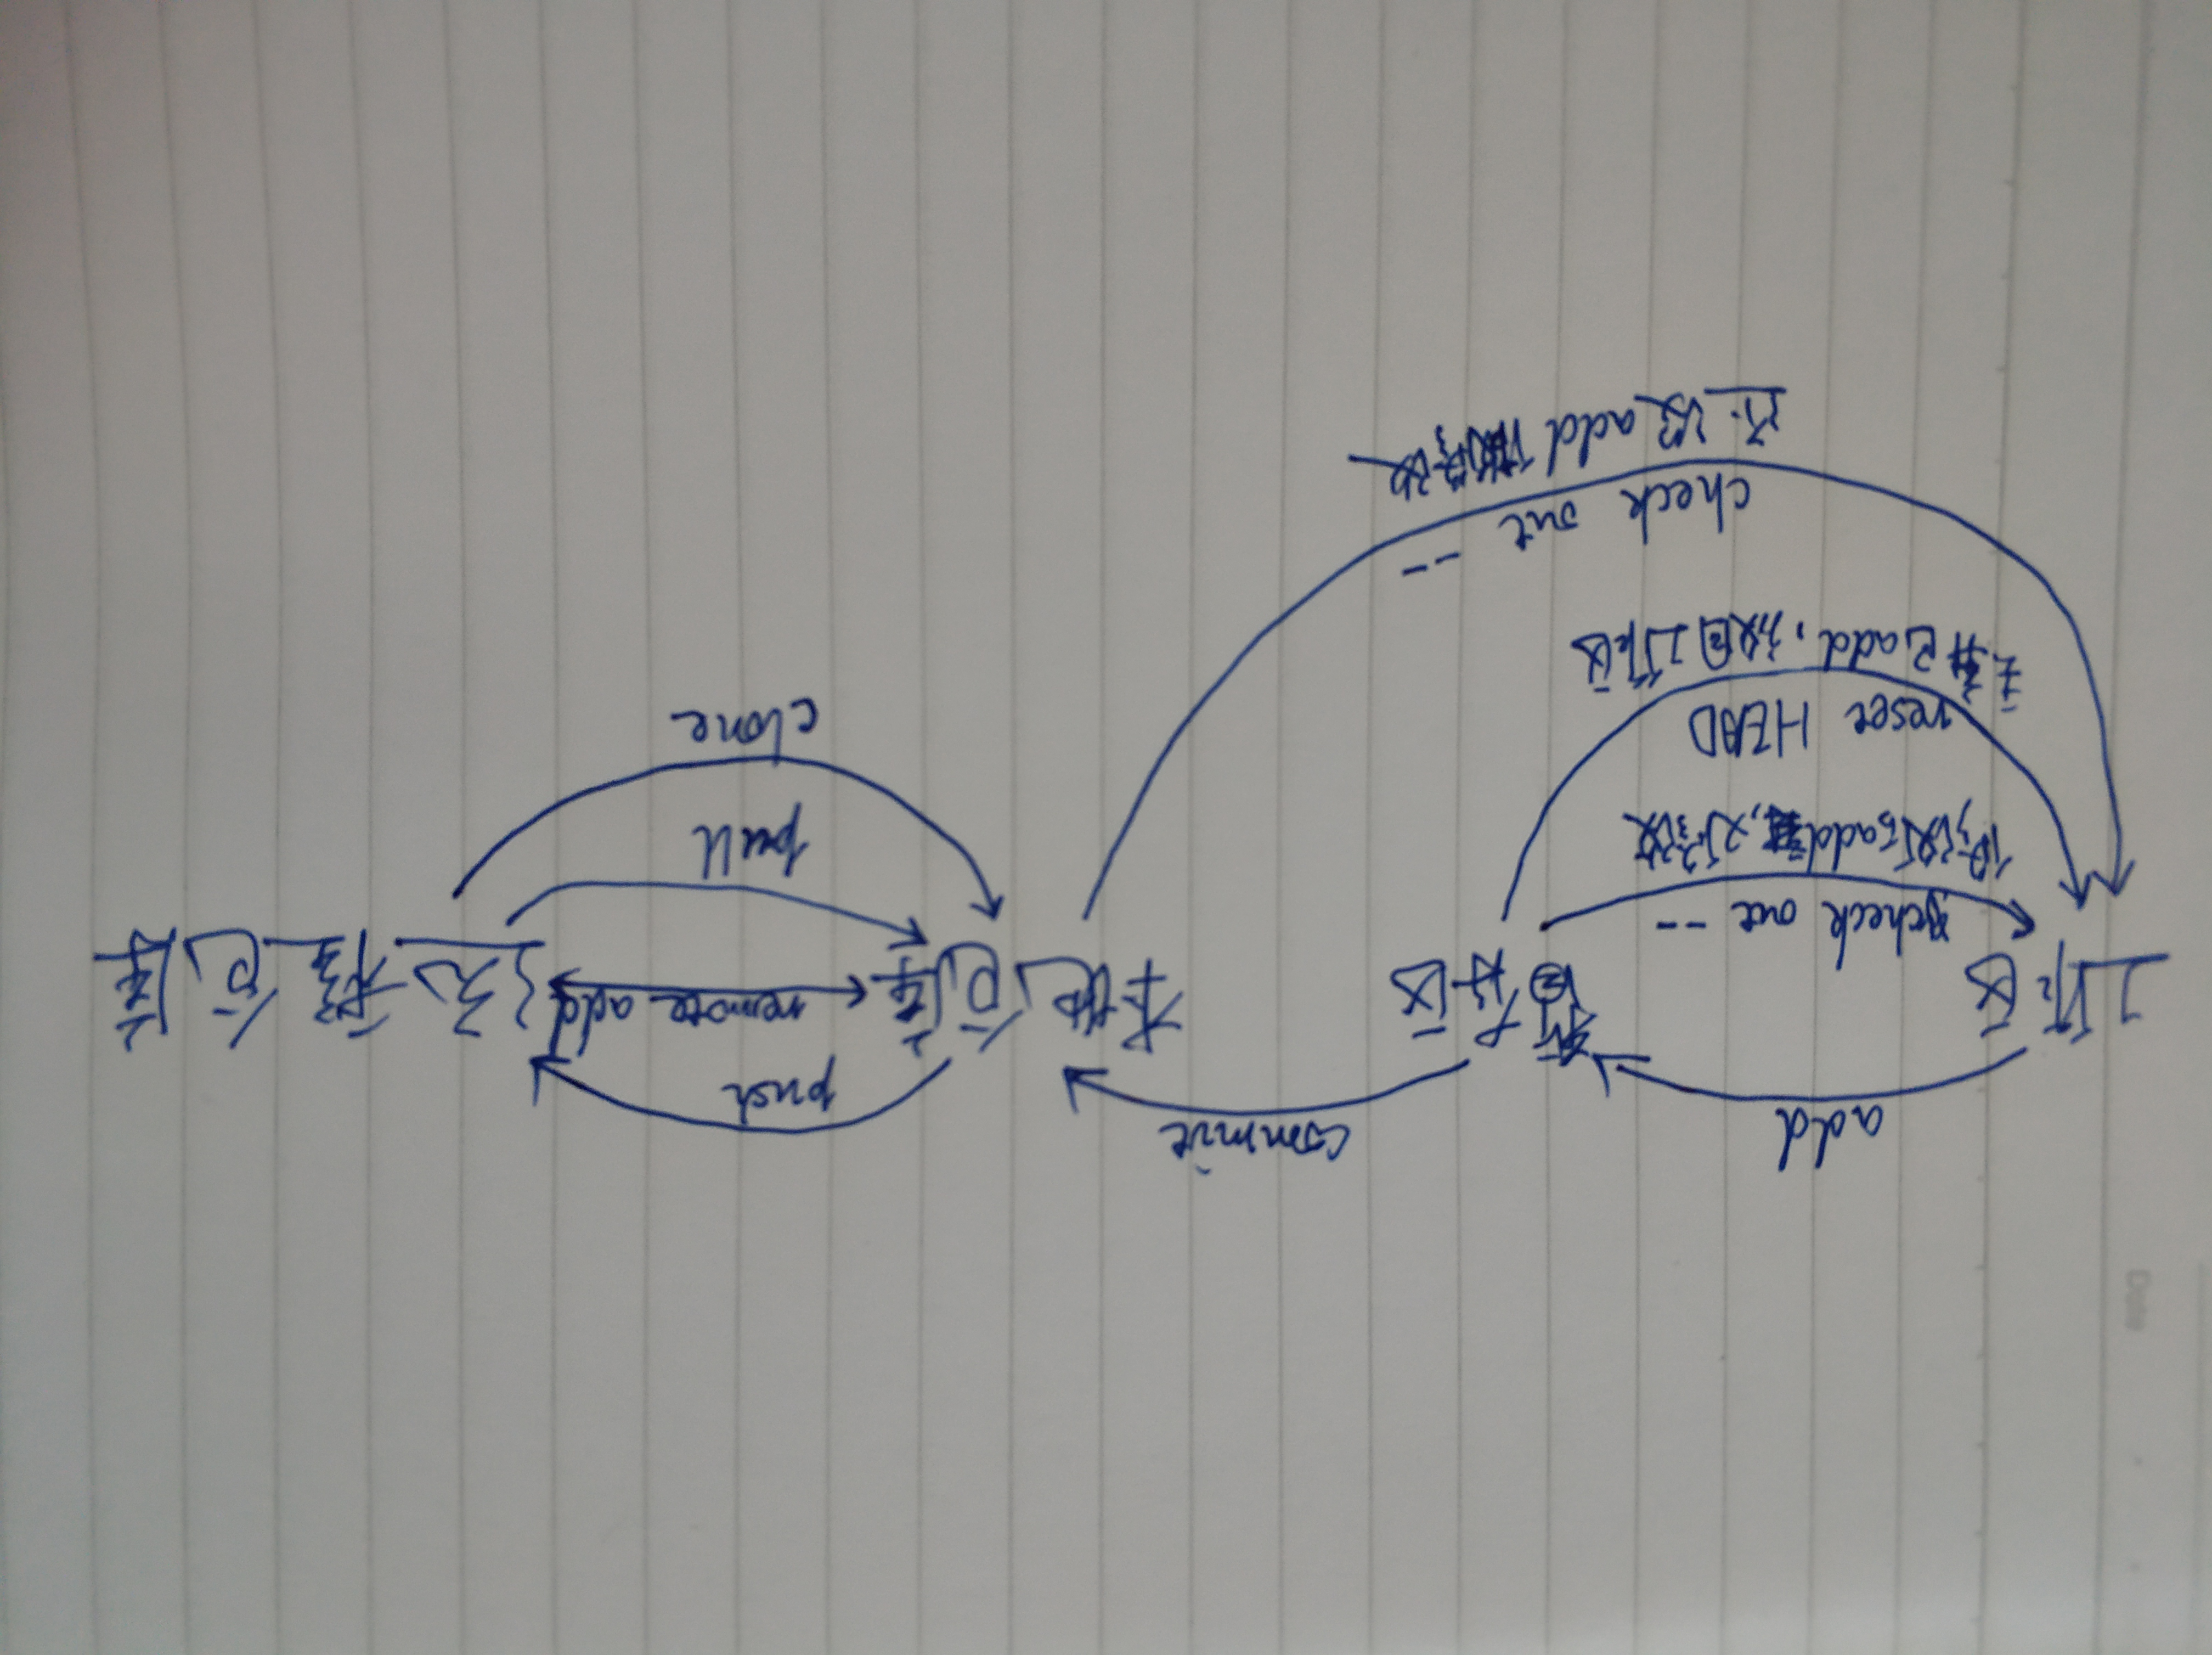 Date
add
commit
push
工作区
暂存区
本地仓库
remote add
远程仓库
check out --
修改后add,又修改
pull
reset HEAD
clone
丢弃已add,放回工作区
check out --
还没add做修改